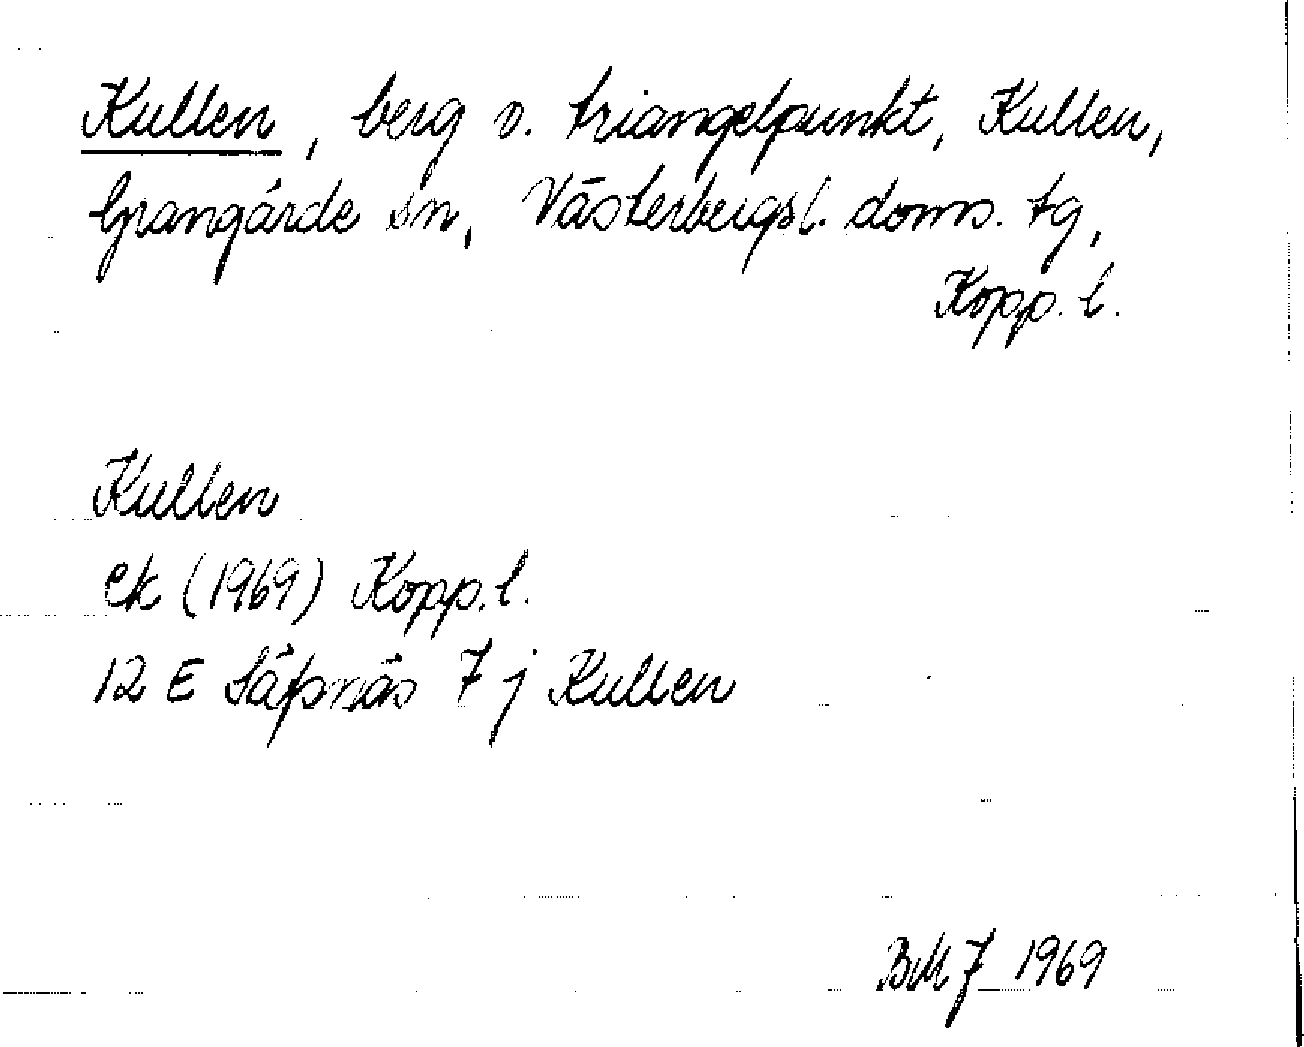 Kullen, berg o. triangelpunkt, Kullen,
Grangärde sn, Västerbergsl. doms. tg,
Kopp. l.
Kullen
ek (1969) Kopp. l.
12 E Säfsnäs 7 j Kullen
BMJ 1969